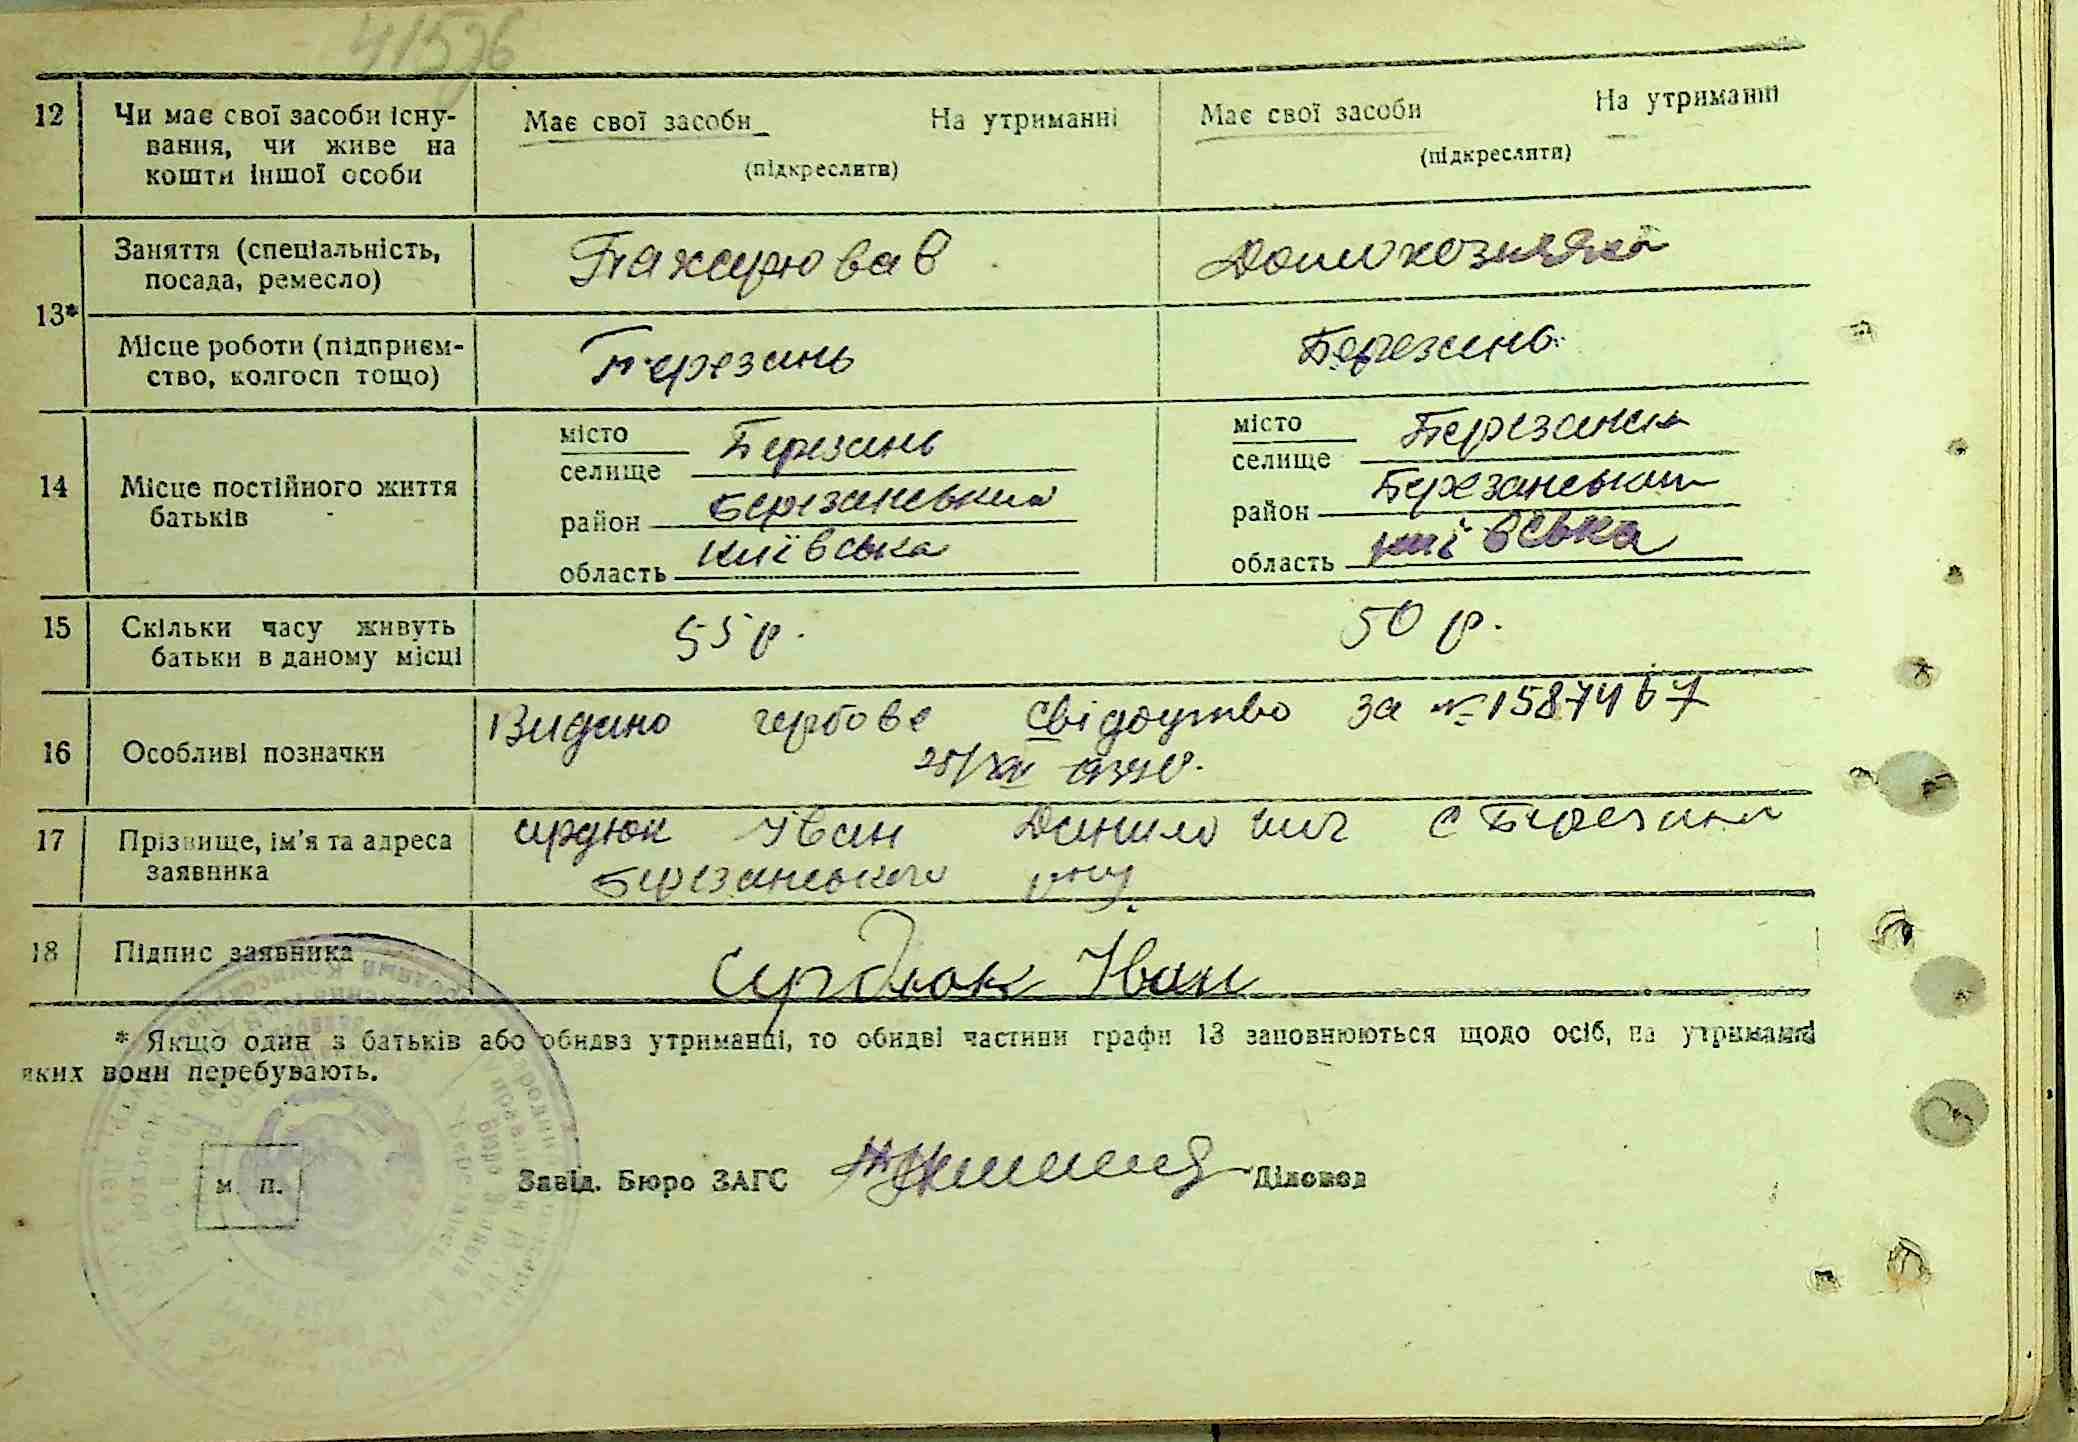 41526
12 Чи має свої засоби існу- Має свої засоби На утриманні Має свої засоби На утриманні
вання, чи живе на (підкреслити) (підкреслити)
кошти іншої особи
Заняття (спеціальність, Домохозяйка
посада, ремесло)
13*
Місце роботи (підприєм- Березань Березань
ство, колгосп тощо)
місто Березань місто Березань
селище селище
14 Місце постійного життя район Березанський район Березанський
батьків
область Київська область Київська
15 Скільки часу живуть 55 р. 50 р.
батьки в даному місці
Видано гербове свідоцтво за №
16 Особливі позначки
17 Прізвище, ім'я та адреса Сірдюк Іван Данилович с Березань
заявника Березанського р-ну
18 Підпис заявника Сірдюк Іван
* Якщо один з батьків або обидва утриманці, то обидві частини графи 13 заповнюються щодо осіб, на утриманні
яких вони перебувають.
м. п. Завід. Бюро ЗАГС Діловод